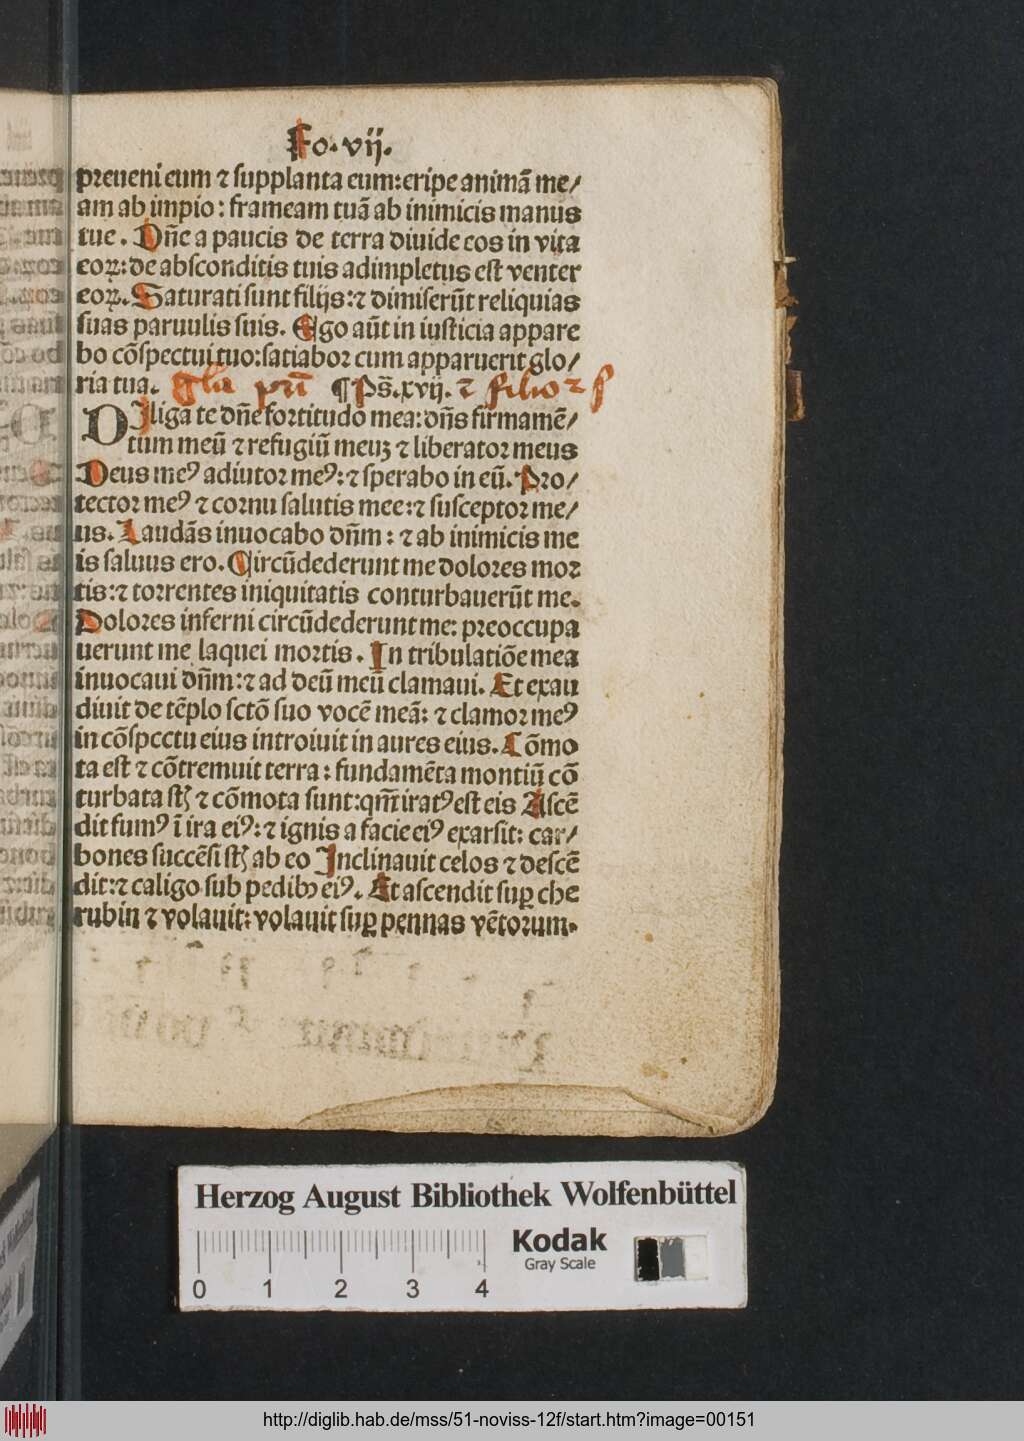 Fo. vij.
preueni eum ⁊ supplanta eum: eripe animã me/
am ab impio: frameam tuã ab inimicis manus
tue. Dñe a paucis de terra diuide eos in vita
eoꝝ: de absconditis tuis adimpletus est venter
eoꝝ. Saturati sunt filijs: ⁊ dimiserũt reliquias
suas paruulis suis. Ego aũt in iusticia appare
bo cõspectui tuo: satiabor cum apparuerit glo/
ria tua. gl̃a pr̃i ¶ Ps̃. xvij. ⁊ filio ⁊ s
DIliga te dñe fortitudo mea: dñs firmamẽ/
tum meũ ⁊ refugiũ meuꝫ ⁊ liberator meus
Deus meꝰ adiutor meꝰ: ⁊ sperabo in eũ. Pro/
tector meꝰ ⁊ cornu salutis mee: ⁊ susceptor me/
us. Laudãs inuocabo dñm: ⁊ ab inimicis me
is saluus ero. Circũdederunt me dolores mor
tis: ⁊ torrentes iniquitatis conturbauerũt me.
Dolores inferni circũdederunt me: preoccupa
uerunt me laquei mortis. In tribulatiõe mea
inuocaui dñm: ⁊ ad deũ meũ clamaui. Et exau
diuit de tẽplo sctõ suo vocẽ meã: ⁊ clamor meꝰ
in cõspectu eius introiuit in aures eius. Cõmo
ta est ⁊ cõtremuit terra: fundamẽta montiũ cõ
turbata st̃ ⁊ cõmota sunt: qm̃ iratꝰ est eis Ascẽ
dit fumꝰ ĩ ira eiꝰ: ⁊ ignis a facie eiꝰ exarsit: car/
bones succẽsi st̃ ab eo Inclinauit celos ⁊ descẽ
dit: ⁊ caligo sub pedibꝰ eiꝰ. Et ascendit suꝑ che
rubin ⁊ volauit: volauit suꝑ pennas vẽtorum.
Herzog August Bibliothek Wolfenbüttel
Kodak
Gray Scale
0 1 2 3 4
http://diglib.hab.de/mss/51-noviss-12f/start.htm?image=00151